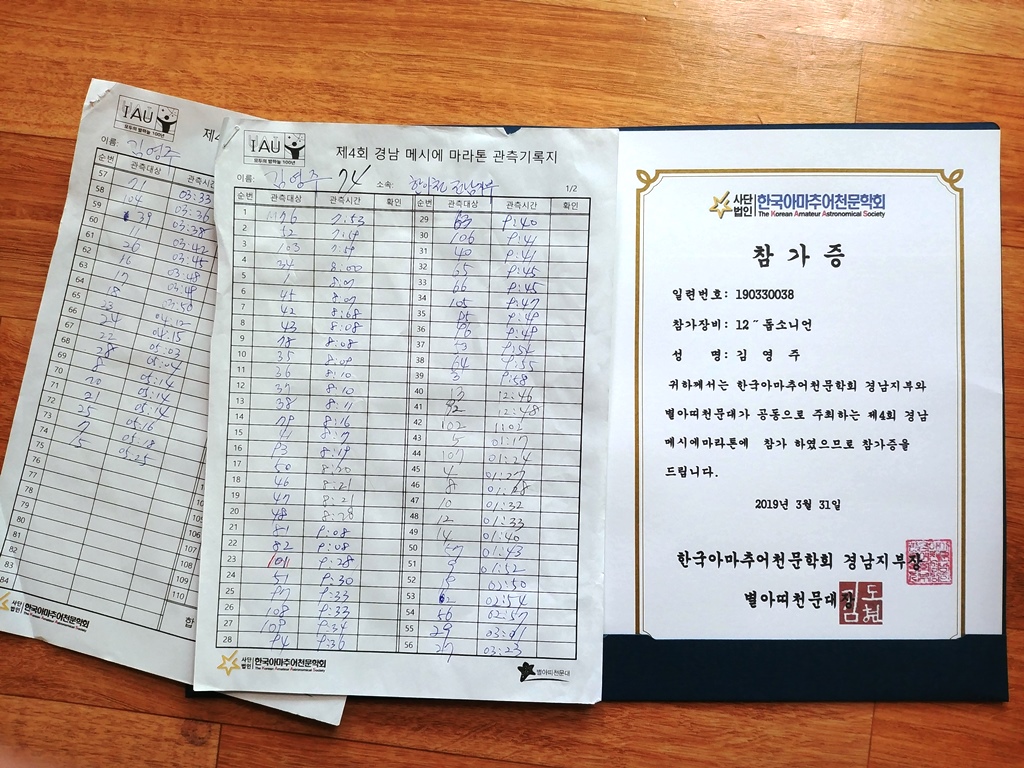 IAU
모두의 밤하늘 100년
제4
이름: 김영주
순번 관측대상 관측시간
57 71 03:33
58 104 03:36
59 39 03:38
60 11 03:42
61 26 03:45
62 16 03:48
63 17 03:49
64 18 03:50
65 23 04:12
66 24 04:15
67 22 05:03
68 28 05:04
69 8 05:14
70 20 05:14
71 21 05:14
72 25 05:16
73 7 05:18
74 15 05:25
75
76
77
78
79
80
81
82
83
84
106
107
108
109
110
사단법인 한국아마추어천문학회
IAU
모두의 밤하늘 100년
제4회 경남 메시에 마라톤 관측기록지
이름: 김영주 74 소속: 한아천 경남지부 1/2
순번 관측대상 관측시간 확인 순번 관측대상 관측시간 확인
1 7:53 29 63 9:40
2 30 106 9:41
3 103 7:59 31 40 9:41
4 34 8:00 32 65 9:45
5 33 66 9:45
6 45 8:07 34 105 9:47
7 42 35 9:49
8 43 8:08 36 9:49
9 78 8:08 37 53
10 35 8:09 38 64 9:55
11 36 8:10 39 3 9:58
12 37 8:10 40 13 12:46
13 38 8:11 41 92 12:48
14 79 8:16 42 102
15 41 8:17 43 5 01:17
16 93 8:19 44 107 01:24
17 50 8:20 45 4 01:27
18 46 8:21 46 01:28
19 47 8:21 47 10 01:32
20 48 8:28 48 12 01:33
21 81 9:08 49 14 01:40
22 82 9:08 50 57 01:43
23 101 9:28 51 9 01:52
24 51 9:30 52 02:50
25 97 9:33 53 62 02:54
26 108 9:33 54 56 02:57
27 109 9:34 55 29 03:01
28 94 9:36 56 27 03:23
사단법인 한국아마추어천문학회
The Korean Amateur Astronomical Society
별아띠천문대
사단법인 한국아마추어천문학회
The Korean Amateur Astronomical Society
참 가 증
일련번호: 190330038
참가장비: 12″ 돕소니언
성 명: 김 영 주
귀하께서는 한국아마추어천문학회 경남지부와
별아띠천문대가 공동으로 주최하는 제4회 경남
메시에마라톤에 참가 하였으므로 참가증을
드립니다.
2019년 3월 31일
한국아마추어천문학회 경남지부장
별아띠천문대장